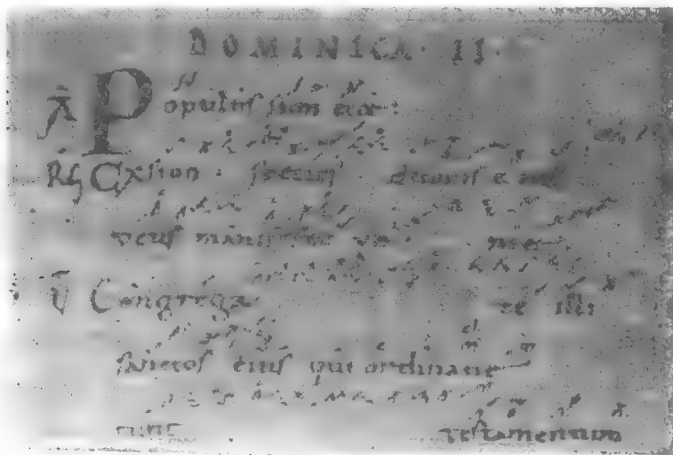 DOMINICA · II ·
A Populus sion ecce :
RG Ex sion . species decoris eius
deus manifeste veniet
V Congrega te illi
sanctos eius qui ordinave
runt testamentum